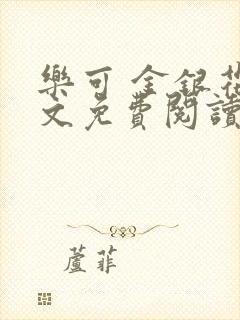 樂可 金銀花
文免費閱讀
蘆菲